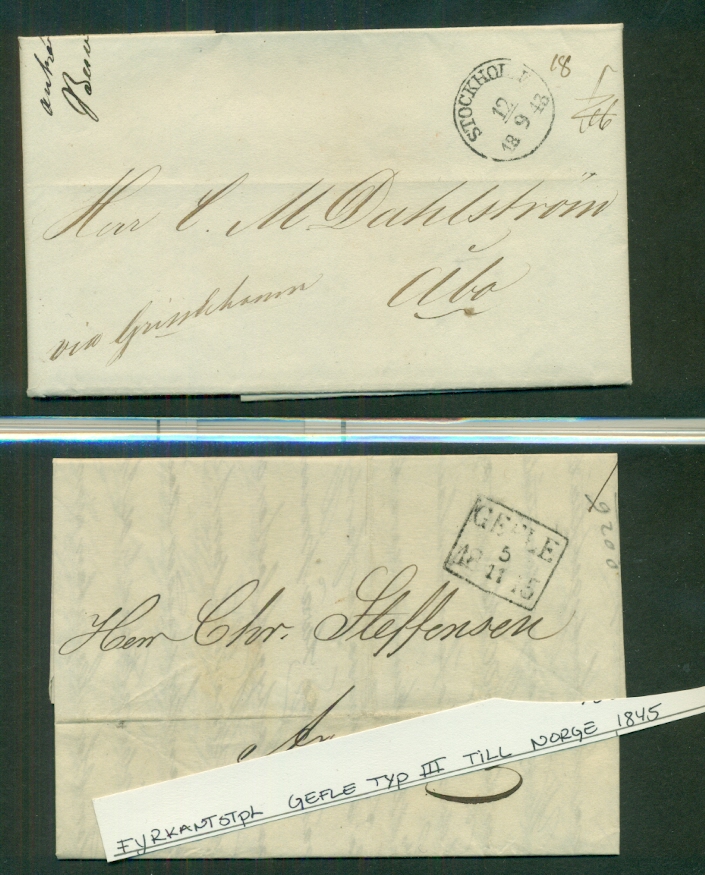 STOCKHOL
12
18 9 43
18
Herr C. M. Dahlström
Åbo
via Grisslehamn
GEFLE
5
18 11 45
9200
Herr Chr. Steffensen
FYRKANTSTPL GEFLE TYP III TILL NORGE 1845